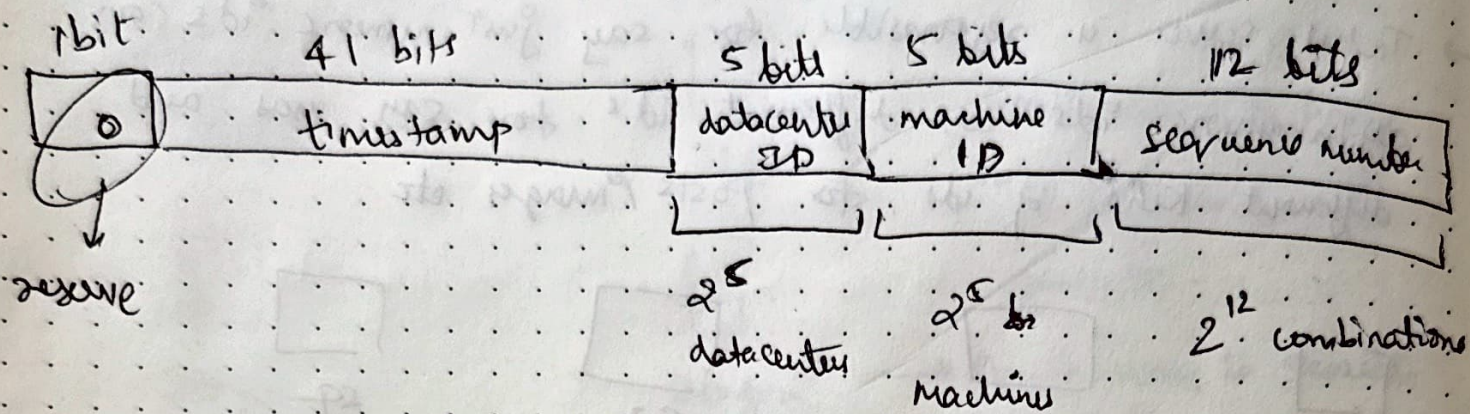 1bit 41 bits 5 bits 5 bits 12 bits
0 timestamp datacenter ID machine ID sequence number
reserve
2^5 datacenters
2^5 machines
2^12 combinations